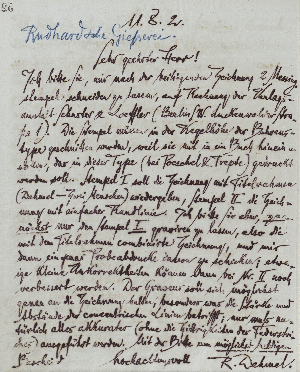 26
11. 8. 2.
Rudhard'sche Giesserei.
Sehr geehrter Herr!
Ich bitte Sie, mir nach der beiliegenden Zeichnung 2 Messing-
stempel schneiden zu lassen, auf Rechnung der Verlags-
anstalt Schuster & Loeffler (Berlin, W. Luckenwalderstra-
Die Stempel müssen in der Kegelhöhe der Behrens-
type geschnitten werden, weil sie mit in ein Buch hinein-
sollen, das in dieser Type (bei Poeschel & Trepte) gedruckt
werden soll. Stempel I soll die Zeichnung mit Titelrahmen
(Dehmel – Zwei Menschen) wiedergeben, Stempel II die Zeich-
nung mit einfacher Randlinie. Ich bitte Sie aber, zu-
nächst nur den Stempel I gravieren zu lassen, also die
mit dem Titelrahmen combinierte Zeichnung, und mir
dann ein paar Probeabdrucke davon zu schicken; etwa-
ige kleine Unkorrektheiten können dann bei Nr. II noch
verbessert werden. Der Graveur soll sich möglichst
genau an die Zeichnung halten, besonders was die Stärke und
Abstände der concentrischen Linien betrifft; nur muß na-
türlich alles akkurater (ohne die Zittrigkeiten des Federstri-
ches) ausgeführt werden. Mit der Bitte um möglichst billigen
hochachtungsvoll
R. Dehmel.